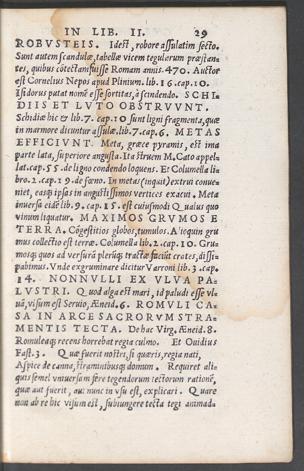 IN LIB. II. 29
ROBVSTEIS. Idest, robore assulatim secto.
Sunt autem scandulæ, tabellæ vicem tegularum præstan-
tes, quibus cōtectam fuisse Romam annis. 470. Auctor
est Cornelius Nepos apud Plinium. lib. 16. cap. 10.
Isidorus putat nomē esse sortitas, à scindendo. SCHI-
DIIS ET LVTO OBSTRVVNT.
Schidiæ hic & lib. 7. cap. 10 sunt ligni fragmenta, quæ
in marmore dicuntur assulæ. lib. 7. cap. 6. METAS
EFFICIVNT. Meta, græce pyramis, est ima
parte lata, superiore angusta. Ita struem M. Cato appel
lat. cap. 55. de ligno condendo loquens. Et Columella li
bro. 2. cap. 19. de fæno. In metas (inquit) extrui conue
niet, easq; ipsas in angustissimos vertices exacui. Meta
inuersa eidē lib. 9. cap. 15. est cuiusmodi Qualus quo
vinum liquatur. MAXIMOS GRVMOS E
TERRA. Cōgestitios globos, tumulos. Alioquin gru
mus collectio est terræ. Columella lib. 2. cap. 10. Gru-
mosq; quos ad versurā plerūq; tractæ faciūt crates, dissi
pabimus. Vnde exgruminare dicitur Varroni lib. 3. cap.
14. NONNVLLI EX VLVA PA-
LVSTRI. Quod alga est mari, id paludi esse vl-
uā, visum est Seruio, Æneid. 6. ROMVLI CA-
SA IN ARCE SACRORVM STRA-
MENTIS TECTA. De hac Virg. Æneid. 8.
Romuleaq; recens horrebat regia culmo. Et Ouidius
Fast. 3. Quæ fuerit nostri, si quæris, regia nati,
Aspice de canna, straminibusq; domum. Requiret ali-
quis semel vniuersam fere tegendorum tectorum rationē,
quæ aut fuerit, aut nunc in vsu est, explicari. Quare
non ab re hic visum est, subiungere tecta tegi animad-